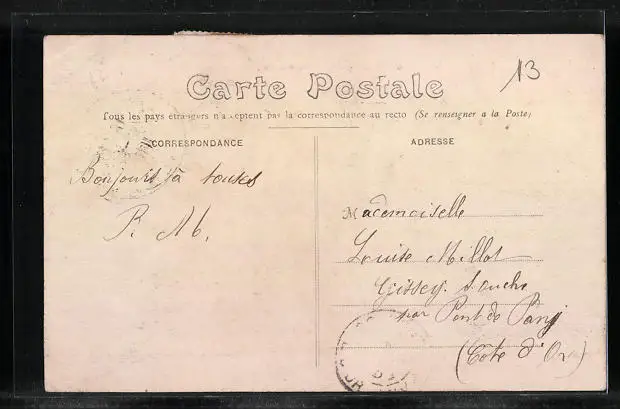 13
Carte Postale
Tous les pays étrangers n'acceptent pas la correspondance au recto (Se renseigner a la Poste)
CORRESPONDANCE
ADRESSE
Bonjours à toutes
P. M.
Mademoiselle
Louise Millot
Gissey s. ouche
par Pont de Pany
(Côte d'Or)